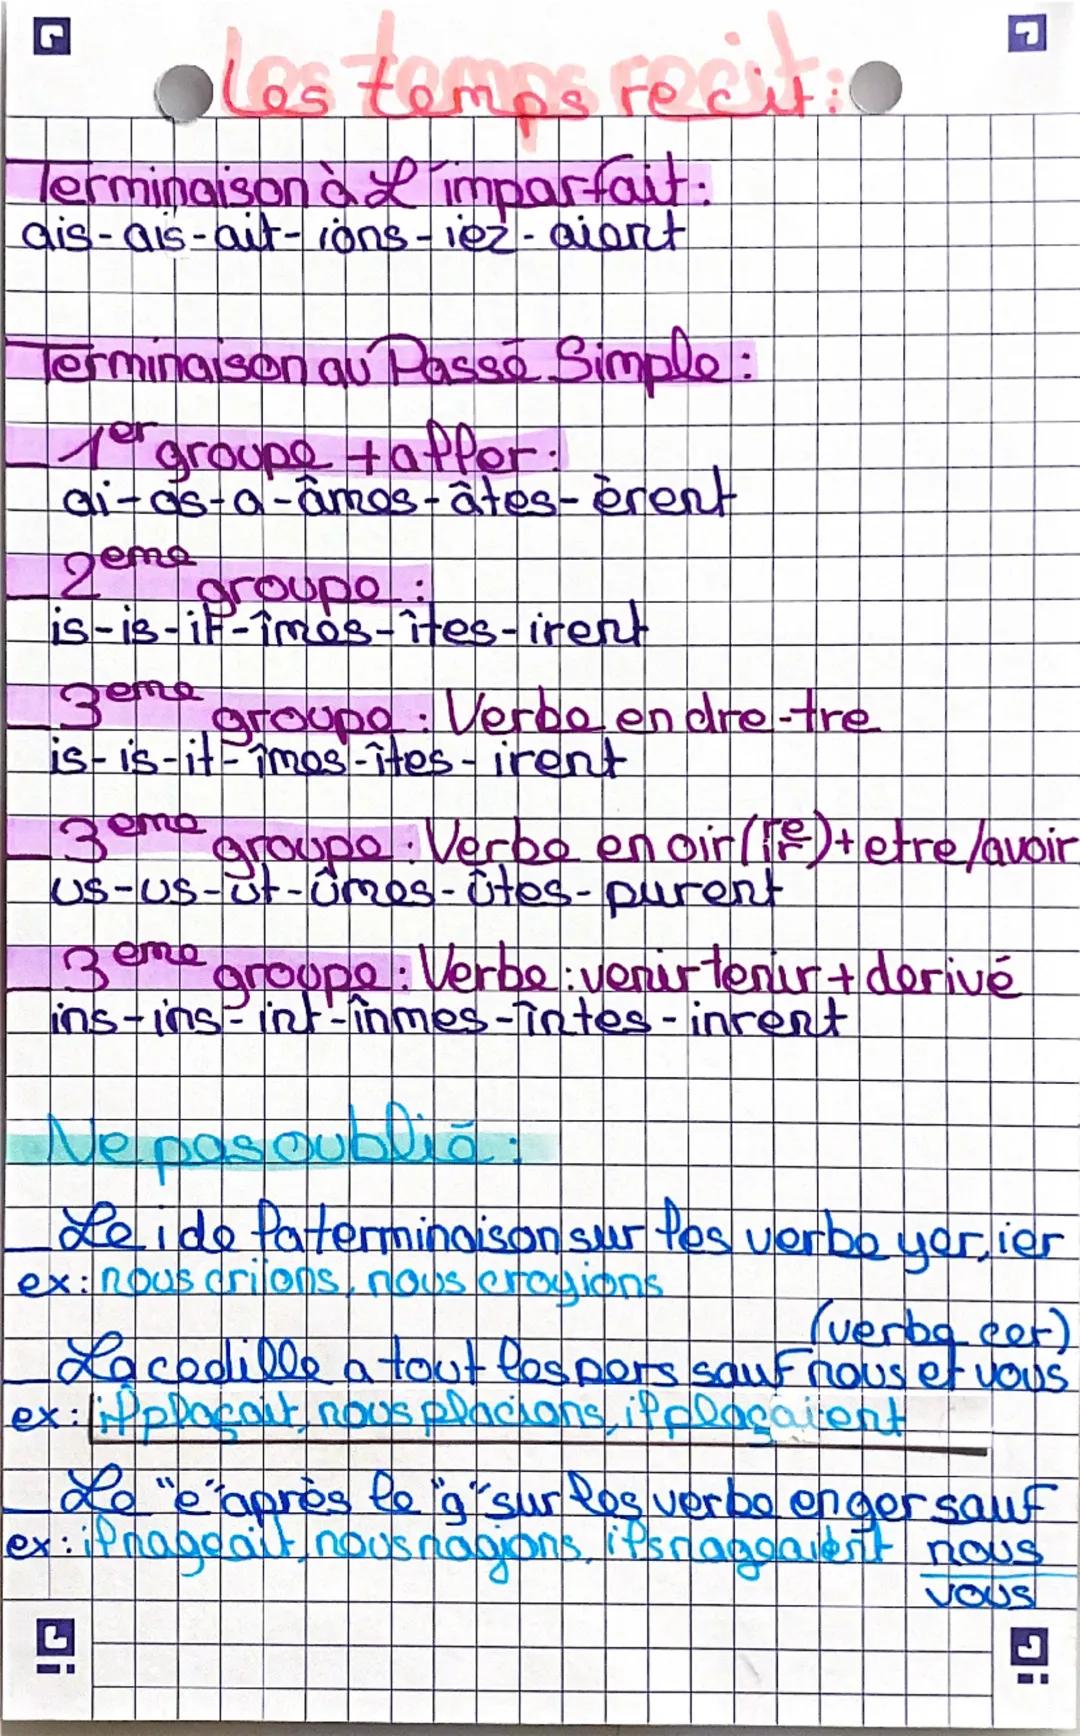 Les temps recit:
Terminaison à L'imparfait:
ais-ais-ait-ions-iez-aient
Terminaison au Passé Simple:
1er groupe + aller:
ai-as-a-âmes-âtes-èrent
2eme groupe:
is-is-it-îmes-îtes-irent
3eme groupe: Verbe en dre-tre
is-is-it-îmes-îtes-irent
3eme groupe: Verbe en oir(re/ir)+etre/avoir
us-us-ut-ûmes-ûtes-purent
3eme groupe: Verbe: venir tenir + derivé
ins-ins-int-înmes-întes-inrent
Ne pas oublié:
Le i de la terminaison sur les verbe yer, ier
ex: nous criions, nous croyions
(verbe cer)
La cedille a tout les pers sauf nous et vous
ex: il plaçait, nous placions, il plaçaient
Le "e" après le "g" sur les verbe en ger sauf
ex: il nageait, nous nagions, ils nageaient nous
vous